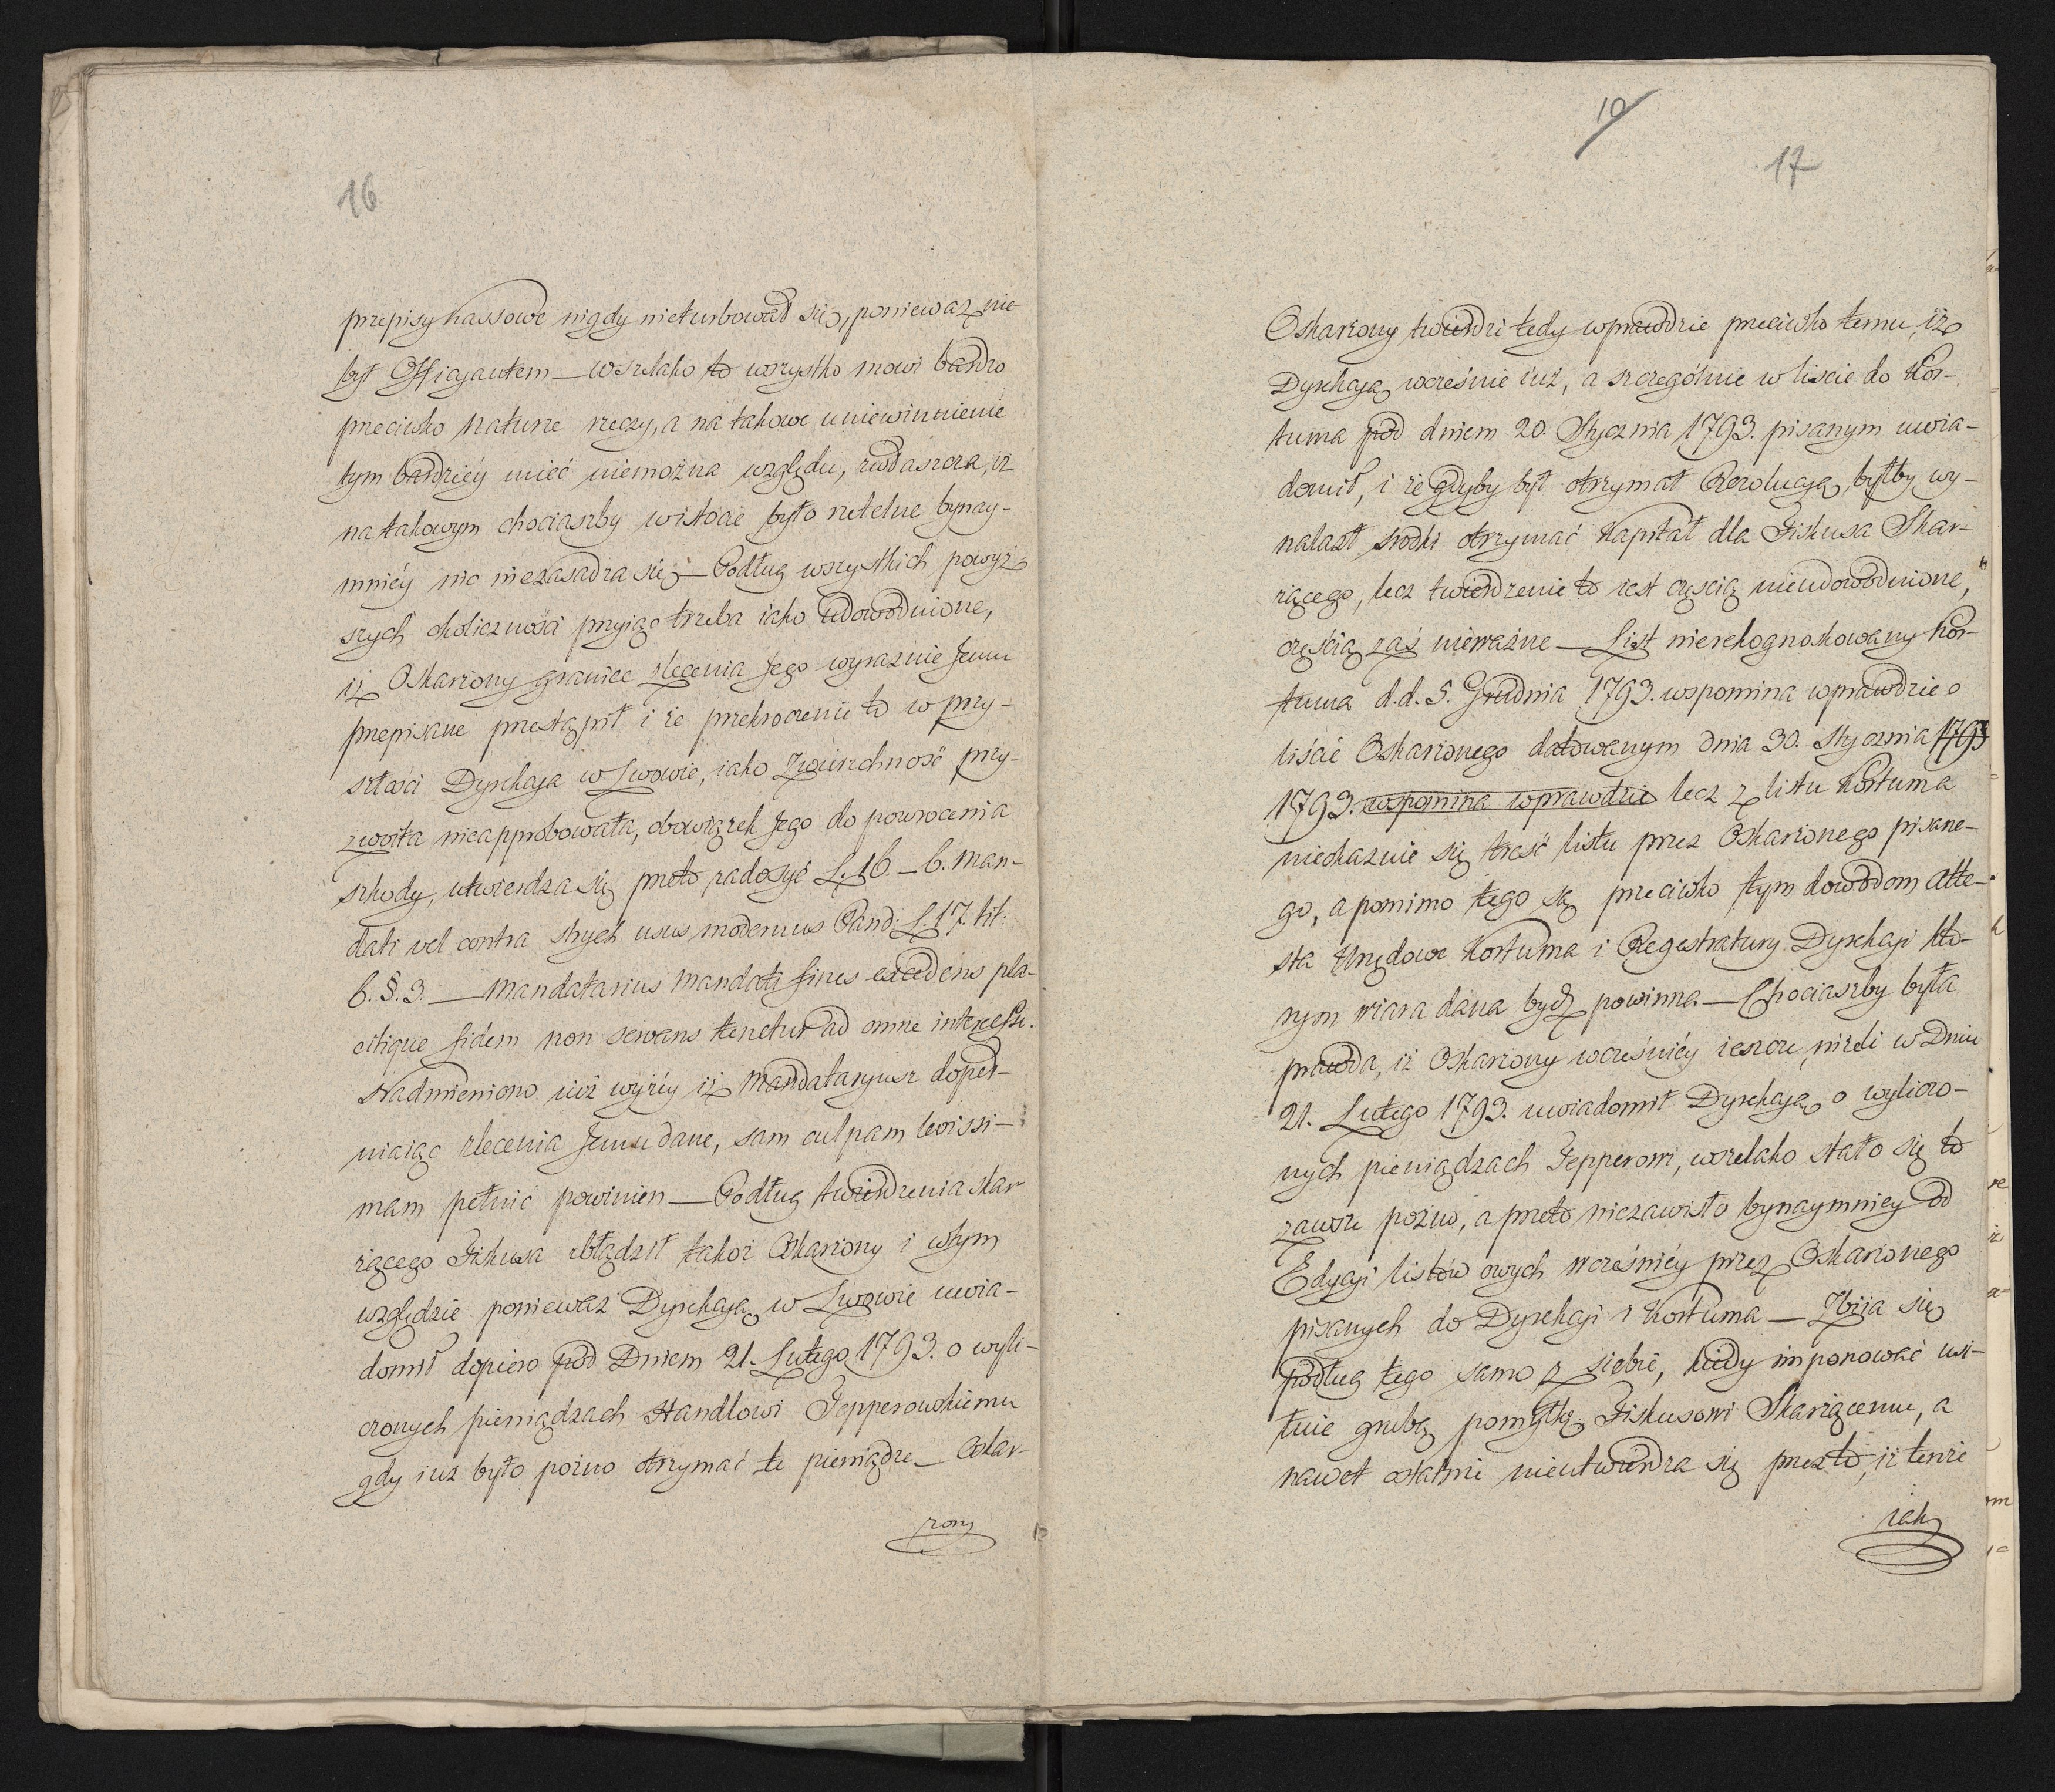 16
przepisy kassowe nigdy nieturbował się, ponieważ nie
był Officyantem — wszelako to wszystko mowi bardzo
przeciwko naturze rzeczy, a na takowe uniewinnienie
tym bardziéy mieć niemożna względu, zwłaszcza, iż
na takowym chociaszby w istocie było rzetelne bynay-
mniéy nic niezasadza się — Podług wszystkich powyż-
szych okoliczności przyiąc trzeba iako udowodnione,
iż Oskarżony granice zlecenia Jego wyraźnie Jemu
przepisane przestąpił i że przekroczenie to w przy-
szłości Dyrekcya w Lwowie, iako Zwierzchność przy-
zwoita nieapprobowała, obowiązek Jego do powrocenia
szkody, utwierdza się przeto zadosyć L. 16. — 6. Man-
dati vel contra stryck usus modernus Pand: L. 17. tit:
6. §. 3. — Mandatarius mandati fines excedens pla-
citique fidem non servans tenetur ad omne interesse.
Nadmieniono iuż wyżéy iż Mandataryusz dopeł-
niaiąc zlecenia Jemu dane, sam culpam levissi-
mam pełnić powinien — Podług twierdzenia skar
żącego Fiskusa zbłądził także Oskarżony i w tym
względzie ponieważ Dyrekcyą w Lwowie uwia-
domił dopiero pod Dniem 21. Lutego 1793. o wyli-
czonych pieniądzach Handlowi Tepperowskiemu
gdy iuż było poźno otrzymać te pieniądze — Oskar-
żony
10
17
Oskarżony twierdzi tedy wprawdzie przeciwko temu, iż
Dyrekcyą wcześnie iuż, a szczególnie w liscie do Kor-
tuma pod dniem 20. Stycznia 1793. pisanym uwia-
domił, i że gdyby był otrzymał Rezolucyą, byłby wy-
nalazł srodki otrzymać kapitał dla Fiskusa Skar-
żącego, lecz twierdzenie to iest częscią nieudowodnione,
częścią zaś nieważne — List nierekognoskowany Kor-
tuma d.d. 5. Grudnia 1793. wspomina wprawdzie o
liście Oskarżonego datowanym dnia 30. Stycznia 1793
1793. wspomina wprawdzie lecz z listu Kortuma
nieokazuie się treść listu przez Oskarżonego pisane-
go, a pomimo tego są przeciwko tym dowodom Atte-
sta Urzędowe Kortuma i Registratury Dyrekcyi kto-
rym wiara dana bydź powinna — Chociaszby była
prawda, iż Oskarżony wcześniéy ieszcze, niżeli w Dniu
21. Lutego 1793. uwiadomił Dyrekcyą o wyliczo-
nych pieniądzach Tepperowi, wszelako stało się to
zawsze poźno, a przeto niezawisło bynaymniey od
Edycyi listów owych wcześniéy przez Oskarżonego
pisanych do Dyrekcyi i Kortuma — Zbija się
podług tego samo z siebie, kiedy imponować usi-
łuie grubą pomyłkę Fiskusowi Skarżącemu, a
nawet ostatnie nieutwierdza się przez to, iż tenże
iak